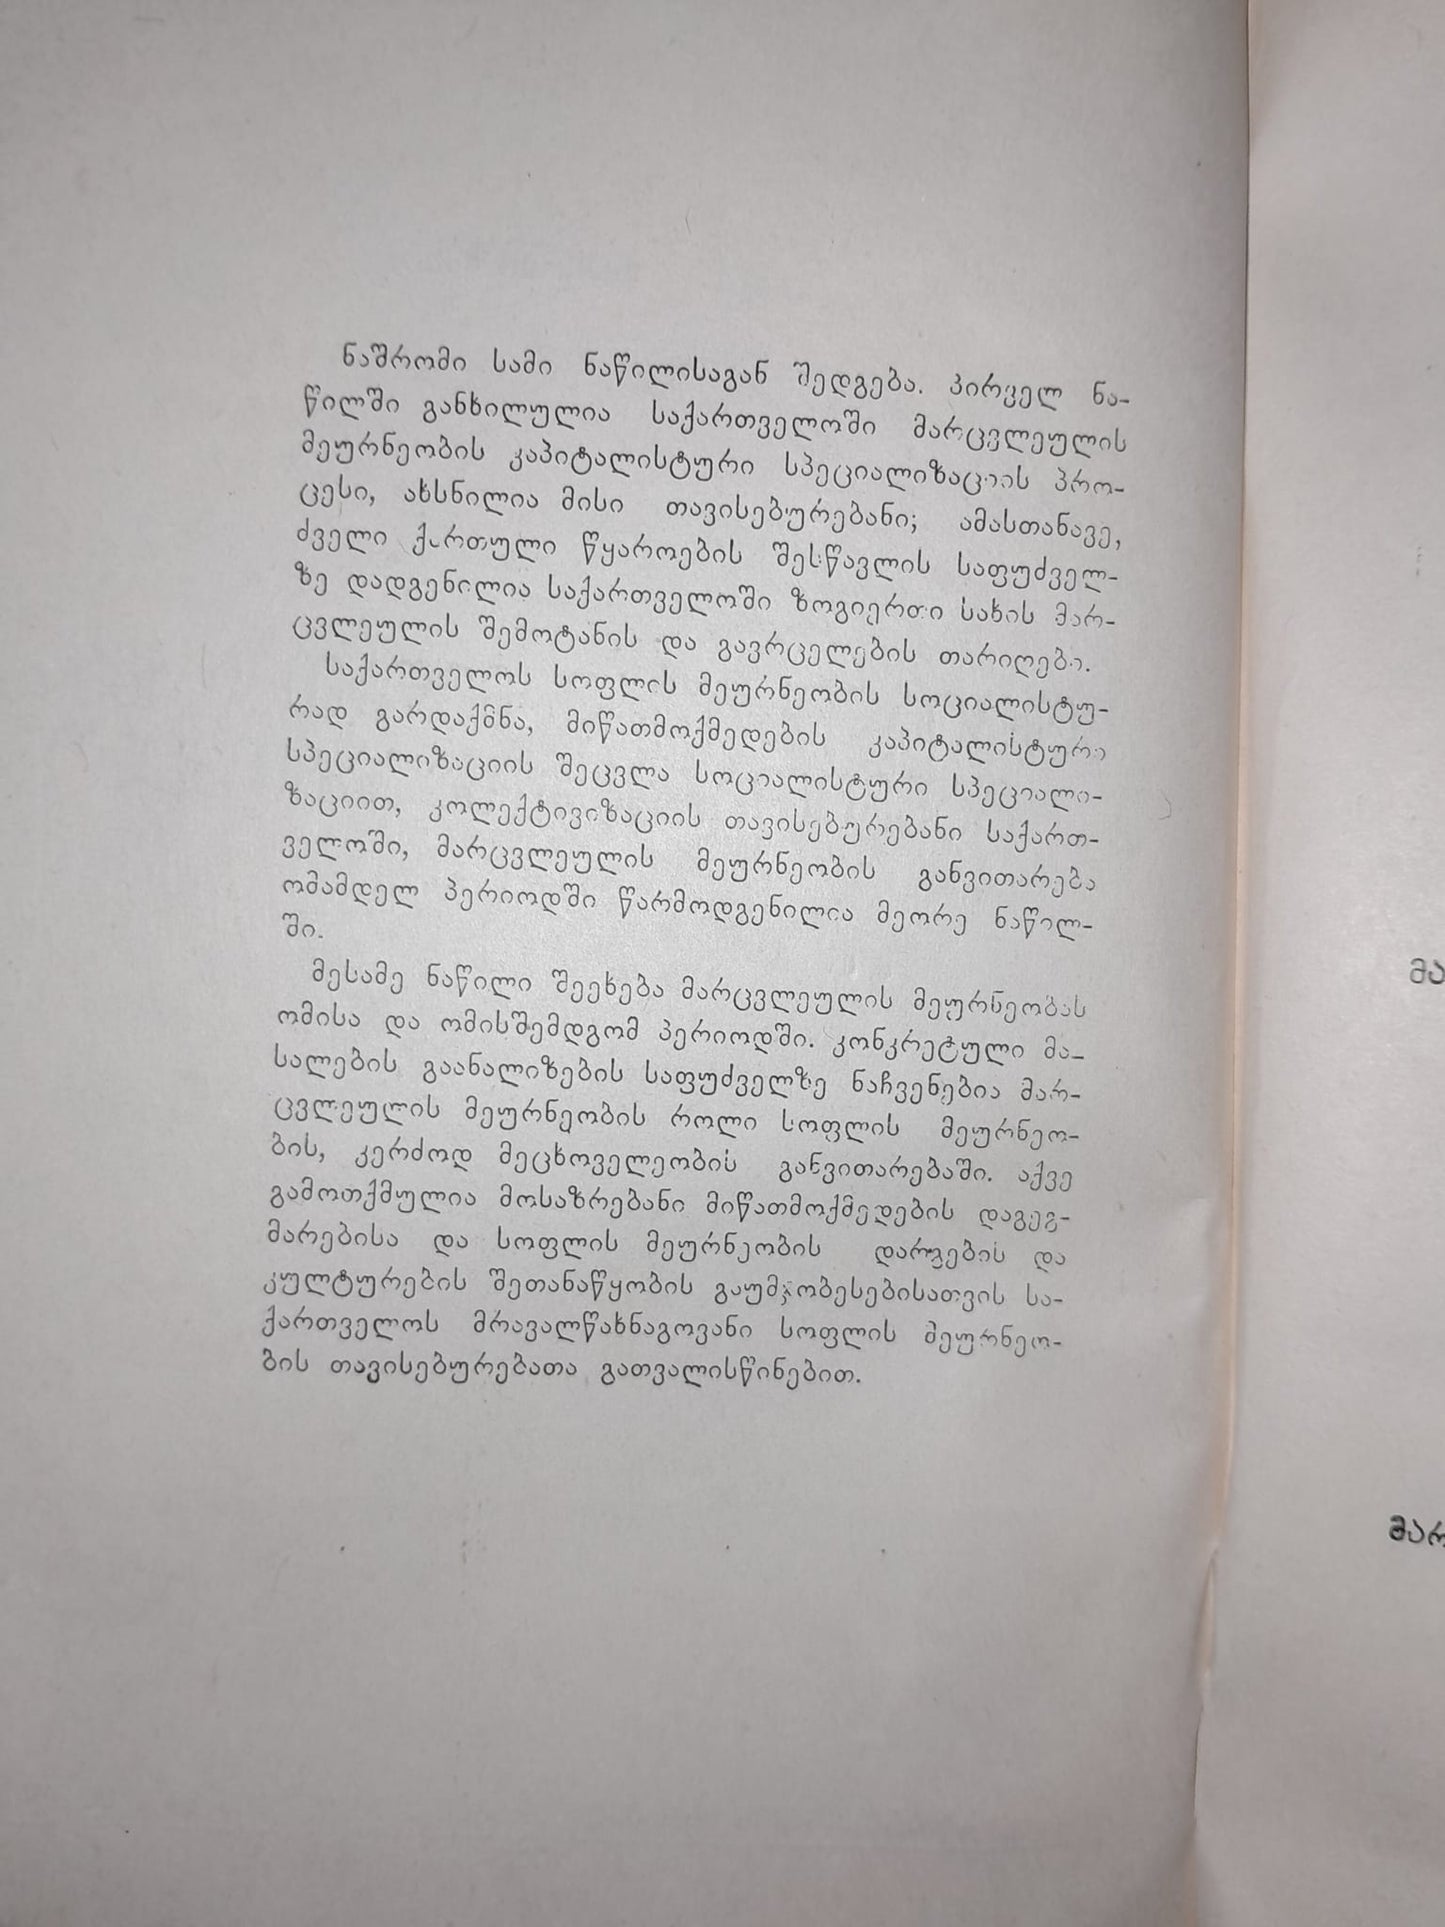 ნაშრომი სამი ნაწილისაგან შედგება. პირველ ნა-
წილში განხილულია საქართველოში მარცვლეულის
მეურნეობის კაპიტალისტური სპეციალიზაციის პრო-
ცესი, ახსნილია მისი თავისებურებანი; ამასთანავე,
ძველი ქართული წყაროების შესწავლის საფუძველ-
ზე დადგენილია საქართველოში ზოგიერთი სახის მარ-
ცვლეულის შემოტანის და გავრცელების თარიღები.
საქართველოს სოფლის მეურნეობის სოციალისტუ-
რად გარდაქმნა, მიწათმოქმედების კაპიტალისტური
სპეციალიზაციის შეცვლა სოციალისტური სპეციალი-
ზაციით, კოლექტივიზაციის თავისებურებანი საქართ-
ველოში, მარცვლეულის მეურნეობის განვითარება
ომამდელ პერიოდში წარმოდგენილია მეორე ნაწილ-
ში.
მესამე ნაწილი შეეხება მარცვლეულის მეურნეობას
ომისა და ომისშემდგომ პერიოდში. კონკრეტული მა-
სალების გაანალიზების საფუძველზე ნაჩვენებია მარ-
ცვლეულის მეურნეობის როლი სოფლის მეურნეო-
ბის, კერძოდ მეცხოველეობის განვითარებაში. აქვე
გამოთქმულია მოსაზრებანი მიწათმოქმედების დაგეგ-
მარებისა და სოფლის მეურნეობის დარგების და
კულტურების შეთანაწყობის გაუმჯობესებისათვის სა-
ქართველოს მრავალწახნაგოვანი სოფლის მეურნეო-
ბის თავისებურებათა გათვალისწინებით.
მა
მარ